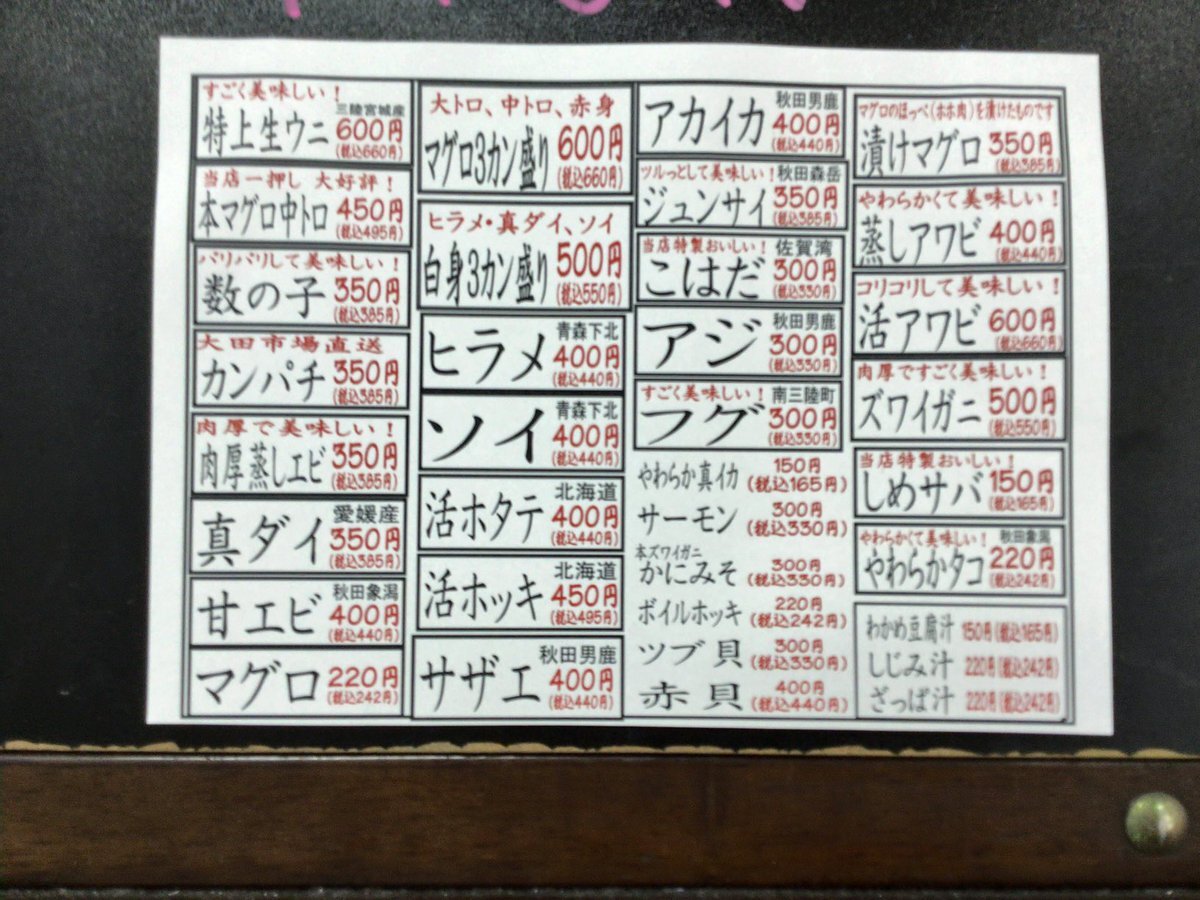 すごく美味しい！
三陸宮城産
特上生ウニ 600円
(税込660円)
当店一押し 大好評！
本マグロ中トロ 450円
(税込495円)
パリパリして美味しい！
数の子 350円
(税込385円)
大田市場直送
カンパチ 350円
(税込385円)
肉厚で美味しい！
肉厚蒸しエビ 350円
(税込385円)
愛媛産
真ダイ 350円
(税込385円)
秋田象潟
甘エビ 400円
(税込440円)
マグロ 220円
(税込242円)
大トロ、中トロ、赤身
マグロ3カン盛り 600円
(税込660円)
ヒラメ・真ダイ、ソイ
白身3カン盛り 500円
(税込550円)
青森下北
ヒラメ 400円
(税込440円)
青森下北
ソイ 400円
(税込440円)
北海道
活ホタテ 400円
(税込440円)
北海道
活ホッキ 450円
(税込495円)
秋田男鹿
サザエ 400円
(税込440円)
秋田男鹿
アカイカ 400円
(税込440円)
ツルっとして美味しい！秋田森岳
ジュンサイ 350円
(税込385円)
当店特製おいしい！ 佐賀湾
こはだ 300円
(税込330円)
秋田男鹿
アジ 300円
(税込330円)
すごく美味しい！ 南三陸町
フグ 300円
(税込330円)
やわらか真イカ 150円
(税込165円)
サーモン 300円
(税込330円)
本ズワイガニ
かにみそ 300円
(税込330円)
ボイルホッキ 220円
(税込242円)
ツブ貝 300円
(税込330円)
赤貝 400円
(税込440円)
マグロのほっぺ(ホホ肉)を漬けたものです
漬けマグロ 350円
(税込385円)
やわらかくて美味しい！
蒸しアワビ 400円
(税込440円)
コリコリして美味しい！
活アワビ 600円
(税込660円)
肉厚ですごく美味しい！
ズワイガニ 500円
(税込550円)
当店特製おいしい！
しめサバ 150円
(税込165円)
やわらかくて美味しい！ 秋田象潟
やわらかタコ 220円
(税込242円)
わかめ豆腐汁 150円(税込165円)
しじみ汁 220円(税込242円)
ざっぱ汁 220円(税込242円)